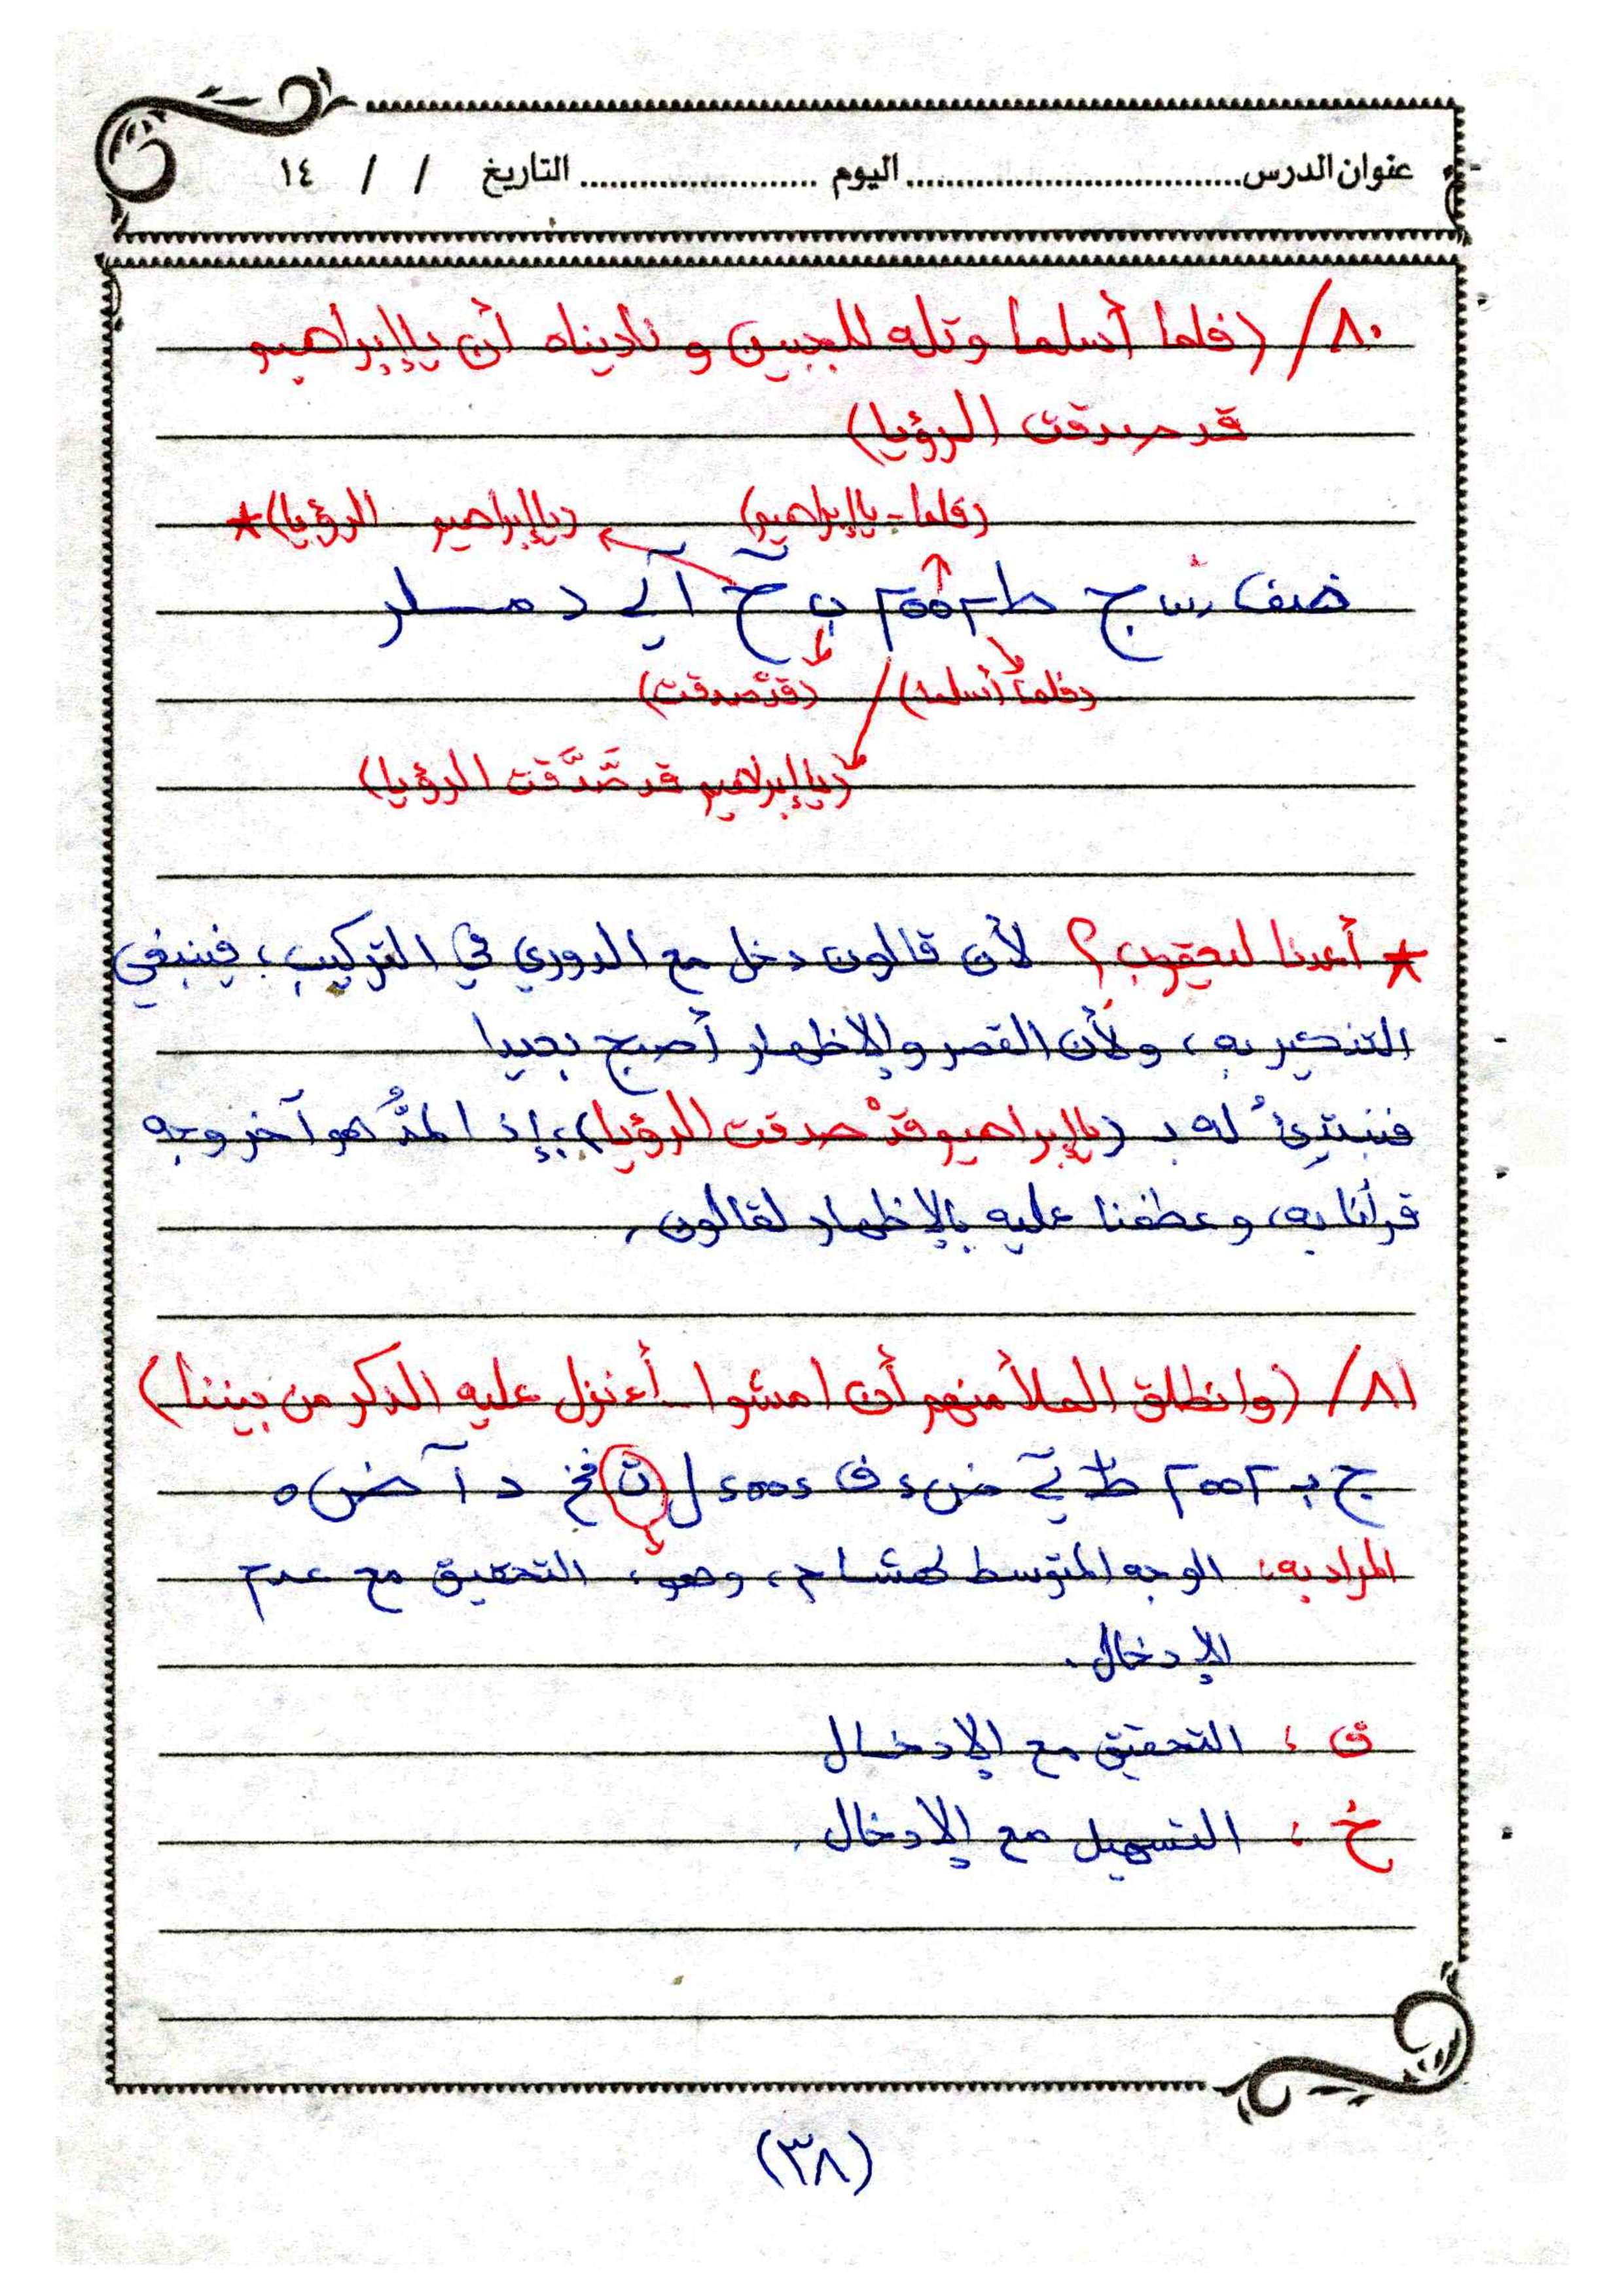 عنوان الدرس .................... اليوم .................... التاريخ / / ١٤
٨٠/ (فلما أسلما وتله للجبين و ناديناه أن ياإبراهيم
قد صدقت الرؤيا)
(فلما - ياإبراهيم) (ياإبراهيم الرؤيا)*
(فلما أسلما) / (قدْ صدقت)
(ياإبراهيم قد صَّدَّقت الرؤيا)
* أعدنا ليعقوب؟ لأن قالون دخل مع الدوري في التركيب، فينبغي
التذكير به، ولأن القصر والإظهار أصبح بعيدا
فنبتدئُ له بـ (ياإبراهيم قدْ صدقت الرؤيا)، إذ المدُّ هو آخر وجه
قرأنا به، وعطفنا عليه بالإظهار لقالون.
٨١/ (وانطلق الملأ منهم أن امشوا - أءنزل عليه الذكر من بيننا)
المراد به: الوجه المتوسط لهشام، وهو: التحقيق مع عدم
الإدخال.
ق: التحقيق مع الإدخال
خ: التسهيل مع الإدخال.
(٣٨)